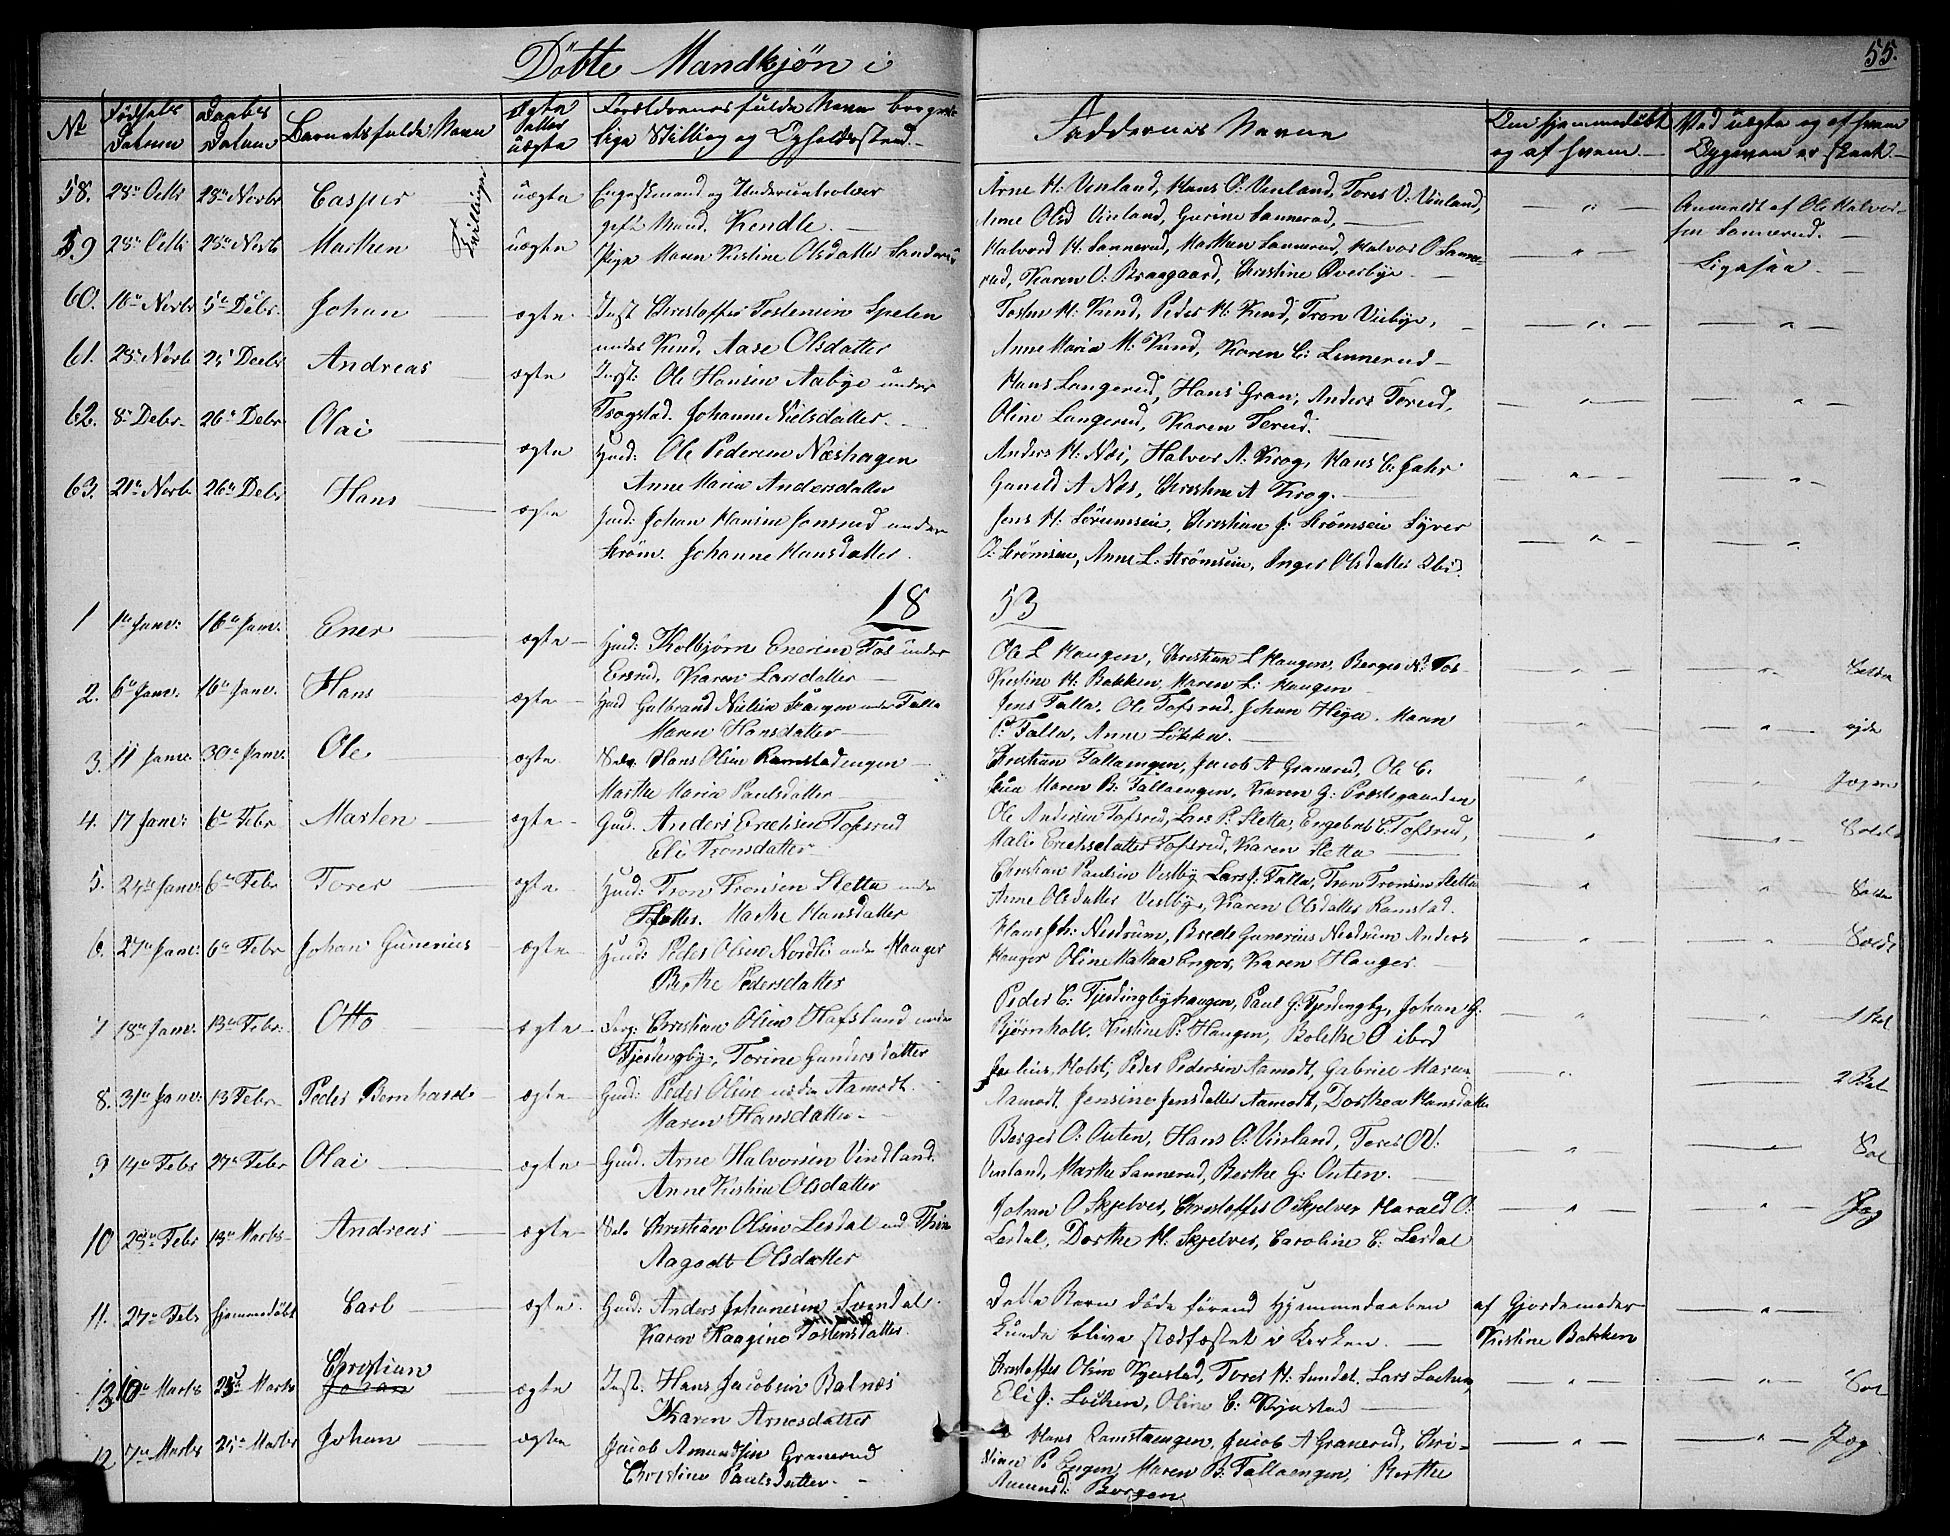 Döbte Mandkjøn i
55.
No
Fødsels Datum
Daabs Datum
Barnets fulde Navn
Ægte eller uægte
Forældrenes fulde Navn borger-
lige Stilling og Opholdssted.
Faddernes Navne
Om hjemmedøbt
og af hvem
Ved uægte og af hvem
Opgaven er skeet
58. 28de Octb 28de Novbr Casper Tvillinger uægte Ungeskmand og Undercontroleur
gift Mand. Kendle.
Arne H: Vinland, Hans O: Vinland, Tores V: Vinland,
Anne Olsd Vinland, Gurine Sannerud,
Anmeldt af Ole Halvor-
sen Sannerud.
59 28de Octb 28de Novbr Marthen uægte Pige Maren Kistine Olsdatter Sanderud
Halvord H: Sannerud, Marthen Sannerud, Halvor O Sanne-
rud, Karen O: Braagaard, Christine Øverbye
Ligesaa
60. 10de Novbr 5te Debr. Johan ægte Inst Christoffer Tostensen Spelen
under Kind, Aase Olsdatter
Tosten H: Kind, Peder H: Kind, Tron Viebye,
Anne Maria M: Kind, Karen C: Linnerud
61. 28de Novb 25 Decbr Andreas ægte Inst: Ole Hansen Aabye under
Trogstad. Johanne Nielsdatter.
Hans Langerud, Hans Gran, Anders Torud,
Oline Langerud, Karen Terud.
62. 8de Debr. 26de Debr Olai ægte Huud: Ole Pedersen Næshagen
Anne Maria Andersdatter
Anders H: Næs, Halvor A: Krog, Hans C: Hahr
Gunild A Næs, Christine A Krog.
63. 21de Novbr 26de Debr Hans ægte Huud: Johan Hansen Jonsrud under
Strøm. Johanne Hansdatter.
Jens H: Sørumseie, Christian J: Strømseie Syver
O: Strømseie, Anne L: Strømseie, Inger Olsdatter Ibid.
18 53
1 1te Janv: 16de Janv. Ener ægte Huud: Kolbjørn Enersen Fos under
Ersrud, Karen Larsdatter
Ole L Haugen, Christian L Haugen, Berger N: Fos
Kistine H: Bakken, Maren L: Haugen
2. 6te Janv. 16de Janv. Hans ægte Huud Gulbrand Nielsen Haugen under Falla
Maren Hansdatter
Jens Falla, Ole Tofsrud, Johan Heyer. Maren
P: Falla, Anne Løkken.
3. 11 Janv. 30de Janv. Ole ægte. Hans Olsen Ramstadengen
Marthe Maria Paulsdatter
Christian Fallaengen, Jacob A Granerud, Ole C.
Maren B: Fallaengen, Karen G: Præstegaarden
4. 17 Janv: 6te Febr Marten ægte Huud. Anders Erichsen Tofsrud
Eli Tronsdatter
Ole Andersen Tofsrud, Lars P: Sletta, Engebret C: Tofsrud,
Mali Erichsdatter Tofsrud, Karen Sletta
5. 24de Janv: 6te Febr Torer ægte Huud: Tron Tronsen Sletta under
Marthe Hansdatter
Christian Paulsen Vestby, Lars J: Falla, Tron Tronsen Sletta
Anne Olsdatter Vestbye, Karen Olsdatter Ramstad.
6. 27de Janv: 6te Febr Johan Gunerius ægte Huud: Peder Olsen Nordli under Hauger
Berthe Pedersdatter
Hans Joh: Nordrum, Brede Gunerius Nordrum Anders
Hauger Oline Mathea Enger, Karen Hauger.
7 18de Janv. 13de Febr: Otto ægte Christian Olsen Hafsland under
Tjerdingby, Torine Gundersdatter
Peder C: Tjerdingbyhaugen, Paul G: Tjerdingby, Johan G:
Bjørnholt. Kistine P: Haugen, Bolethe O ibed
8. 31te Janv: 13 Febr Peder Bernhard ægte Huud: Peder Olsen under Aamodt.
Maren Hansdatter
Julius Holst, Peder Pedersen Aamodt, Gabriel Maren
Aamodt, Jensine Jensdatter Aamodt, Dorthea Hansdatter
9 14de Febr 27de Febr Olai ægte Huud. Arne Halvorsen Vindland.
Anne Kistine Olsdatter
Berger O: Outen, Hans O: Vinland, Tores O:
Vinland, Marthe Sannerud, Berthe G: Outen.
10 23de Febr 13de Marts Andreas ægte Christian Olsen Lerdal
Aagodt Olsdatter
Johan O Skjelver, Christoffer O Skjelver Harald O:
Lerdal, Dorthe H: Skjelver, Caroline C: Lerdal
11. 27de Febr hjemmedøbt Carl ægte Huud: Anders Johanesen Svendal.
Karen Haagine Tostensdatter
Dette Barn døde førend Hjemmedaaben
kunde blive stadfæstet i Kirken.
af Gjordemoder
Kistine Bakken
13 10de Marts 25de Marts Christian Johan ægte Inst. Hans Jacobsen Balnæs
Karen Arnesdatter
Christoffer Olsen Kjenstad, Tores H. Sundet, Lars Løchen,
Eli J: Løchen, Oline C: Kjenstad
12 7de Marts 25de Marts Johan ægte Jacob Amundsen Granerud
Christine Paulsdatter.
Hans Ramstaengen, Jacob A Granerud, Chri-
stian P: Engen, Maren B: Fallaengen, Berthe
Amund: Borgen